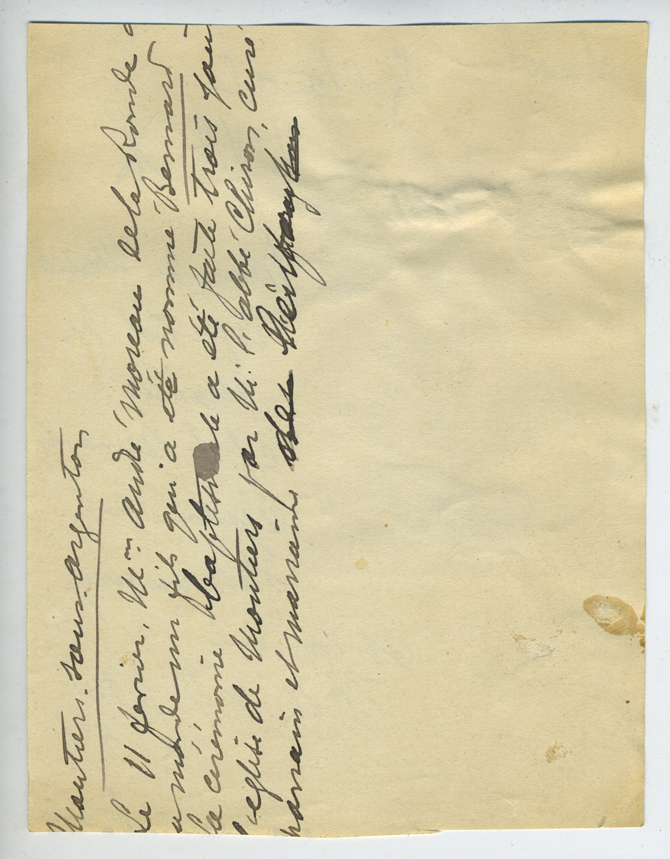 Moutiers-sous-Argenton
Le 11 fevrier, Mme André Moreau de la Ronde a
mis au monde un fils qui a été nommé Bernard
la cérémonie baptismale a été faite trois jours
l'eglise de Moutiers par M. l'abbé Chiron, curé
parrain et marraine